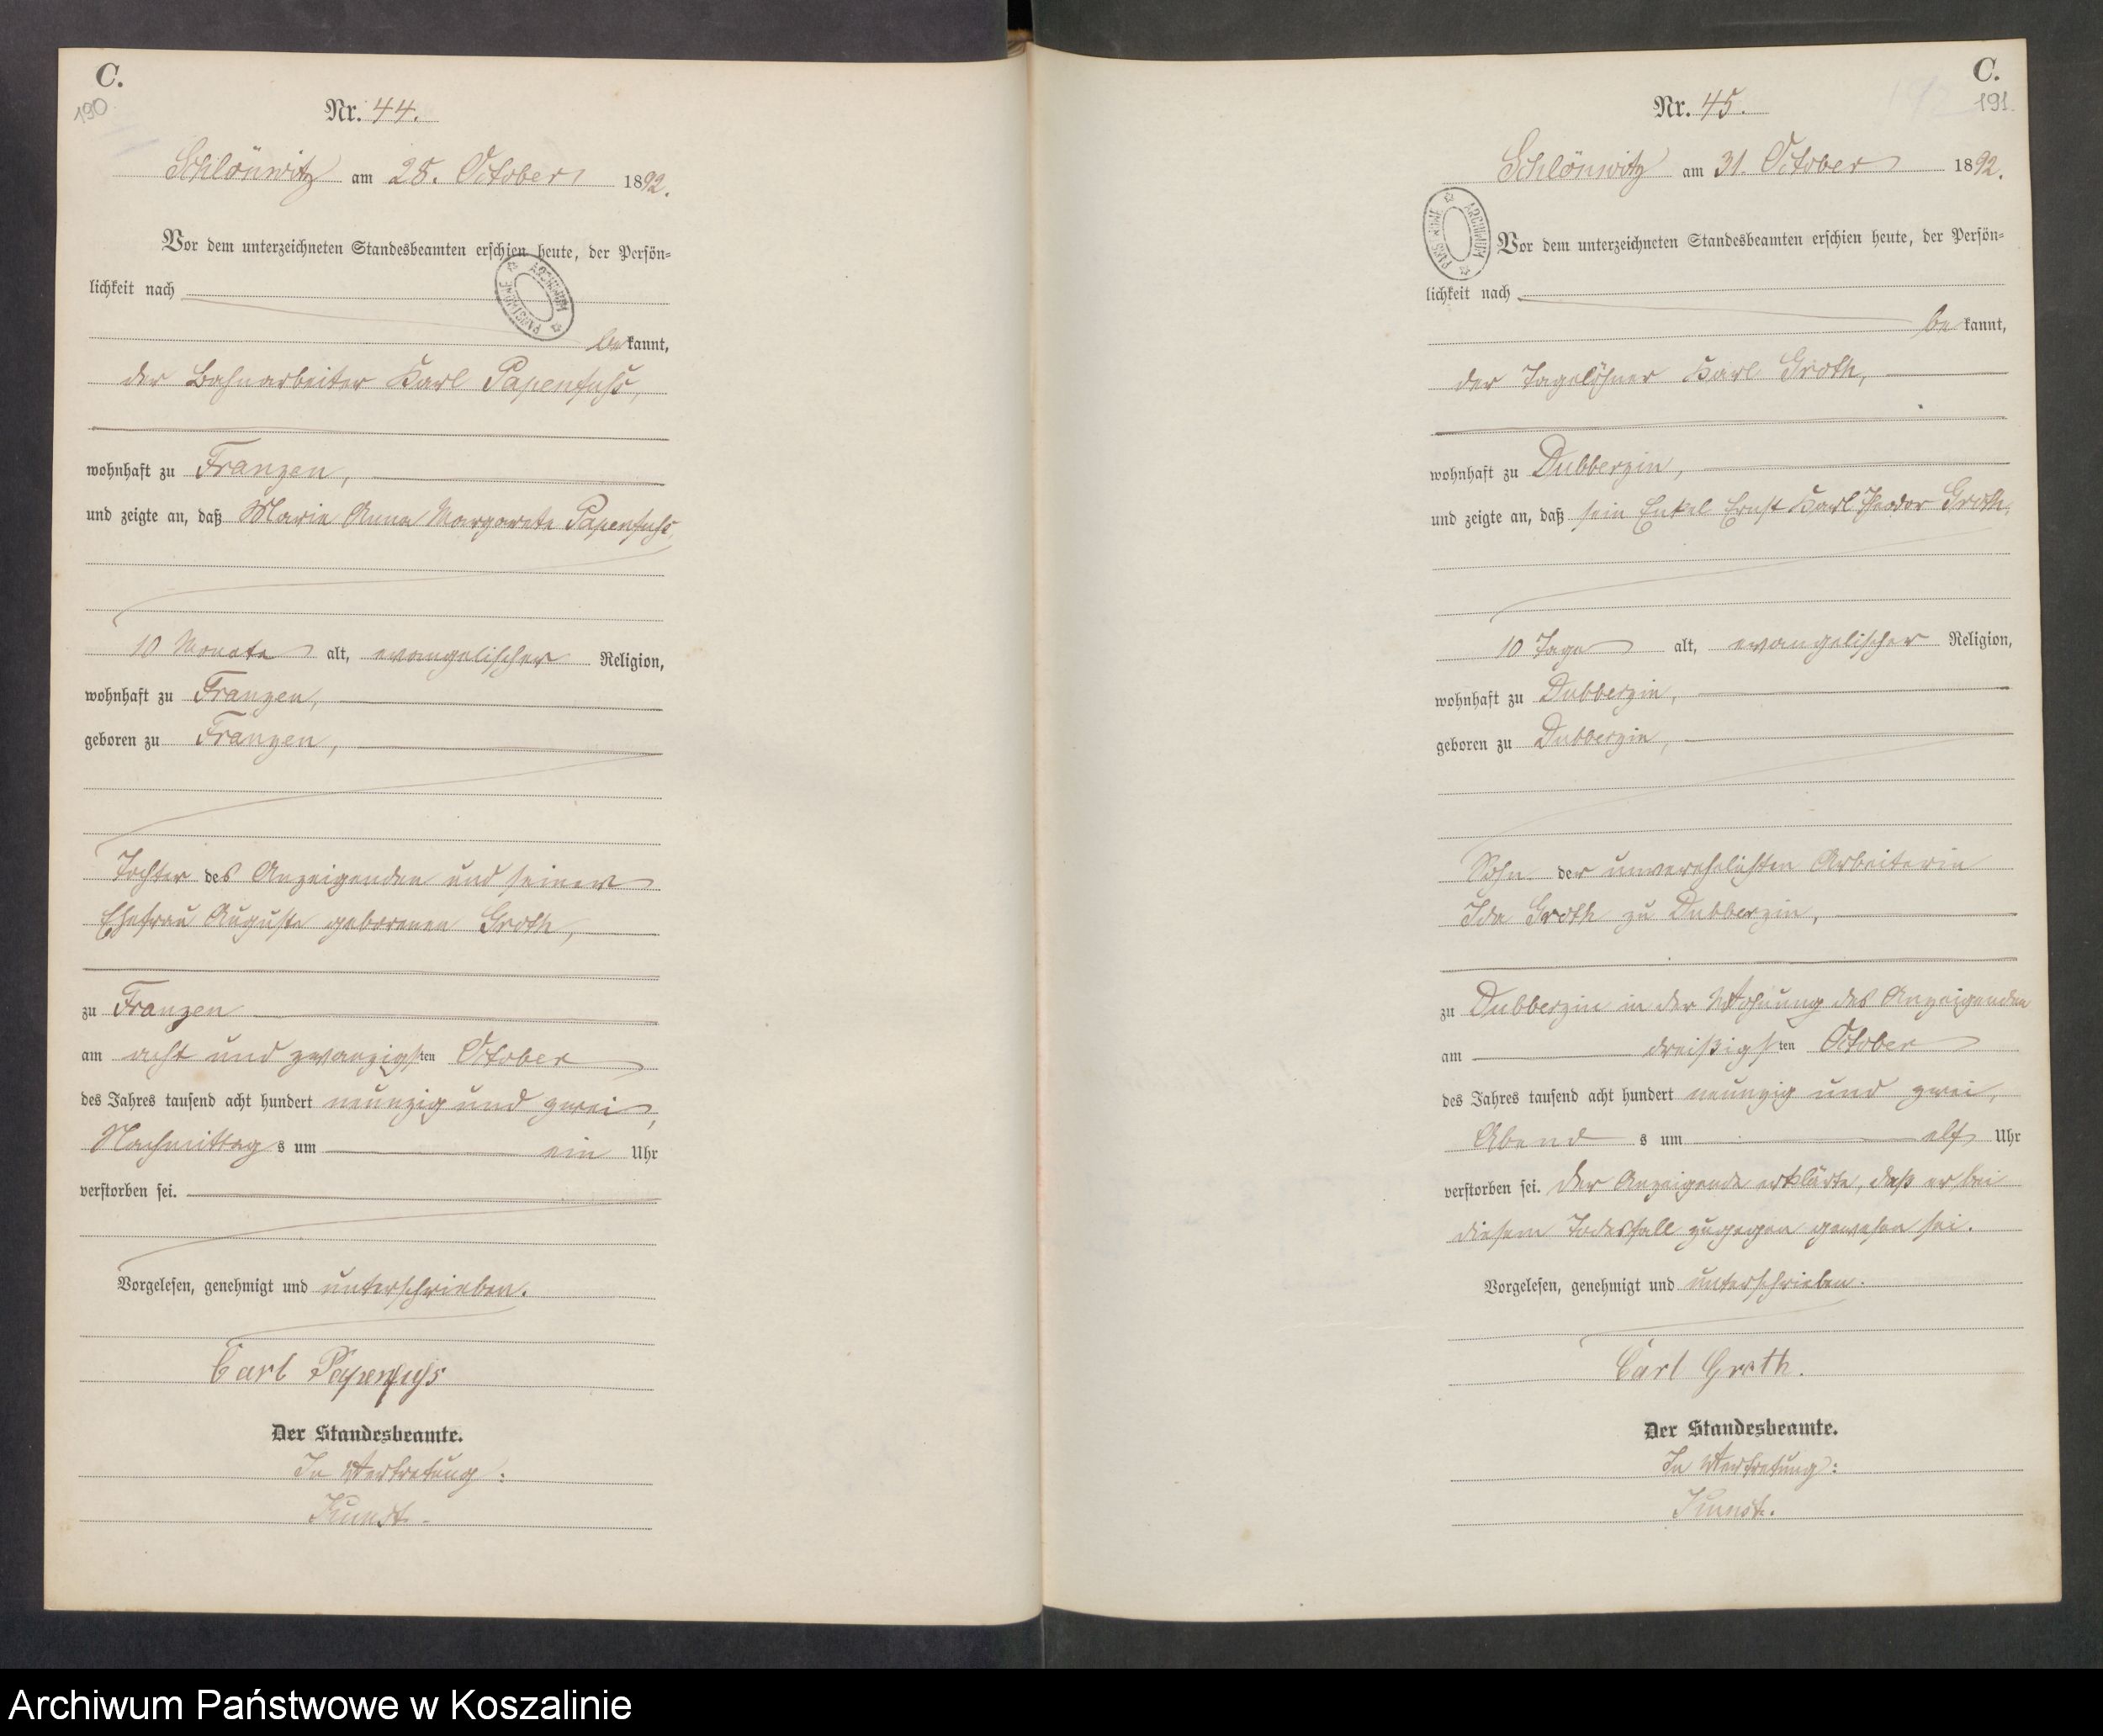 C.
190
Nr. 44.
Schlönwitz am 28. October 1892.
Vor dem unterzeichneten Standesbeamten erschien heute, der Persön=
lichkeit nach
ARCHIWUM PAŃSTWOWE
be kannt,
der Bahnarbeiter Karl Papenfuhs,
wohnhaft zu Franzen,
und zeigte an, daß Marie Anna Margarete Papenfuhs,
10 Monate alt, evangelischer Religion,
wohnhaft zu Franzen,
geboren zu Franzen,
Tochter des Anzeigenden und seiner
Ehefrau Auguste geborenen Groth,
zu Franzen
am acht und zwanzigsten October
des Jahres tausend acht hundert neunzig und zwei,
Nachmittag s um ein Uhr
verstorben sei.
Vorgelesen, genehmigt und unterschrieben.
Carl Papenfuhs
Der Standesbeamte.
In Vertretung:
C.
191.
Nr. 45.
Schlönwitz am 31. October 1892.
ARCHIWUM PAŃSTWOWE
Vor dem unterzeichneten Standesbeamten erschien heute, der Persön=
lichkeit nach
be kannt,
der Tagelöhner Karl Groth,
wohnhaft zu Dubberzin,
und zeigte an, daß sein Enkel Ernst Karl Theodor Groth,
10 Tage alt, evangelischer Religion,
wohnhaft zu Dubberzin,
geboren zu Dubberzin,
Sohn der unverehelichten Arbeiterin
Ida Groth zu Dubberzin,
zu Dubberzin in der Wohnung des Anzeigenden
am dreißigsten October
des Jahres tausend acht hundert neunzig und zwei,
Abend s um elf Uhr
verstorben sei. Der Anzeigende erklärte, daß er bei
diesem Todesfall zugegen gewesen sei.
Vorgelesen, genehmigt und unterschrieben.
Carl Groth.
Der Standesbeamte.
In Vertretung:
Archiwum Państwowe w Koszalinie